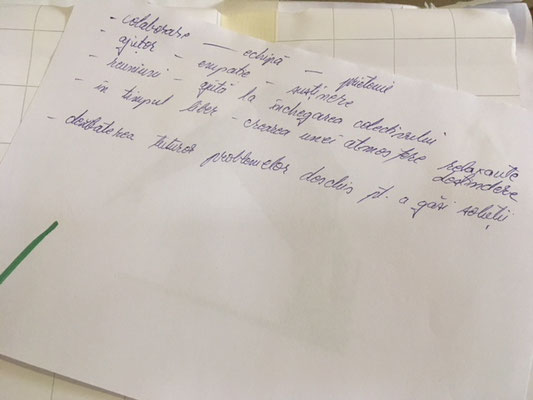 - colaborare — echipă — prietenie
- ajutor - empatie - susținere
- reuniuni - ajută la închegarea colectivului
- în timpul liber - crearea unei atmosfere relaxante
destindere
- dezbaterea tuturor problemelor deschis pt. a găsi soluții